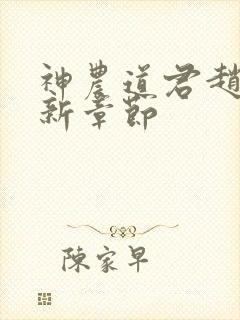 神農道君趙
新章節
陳家早